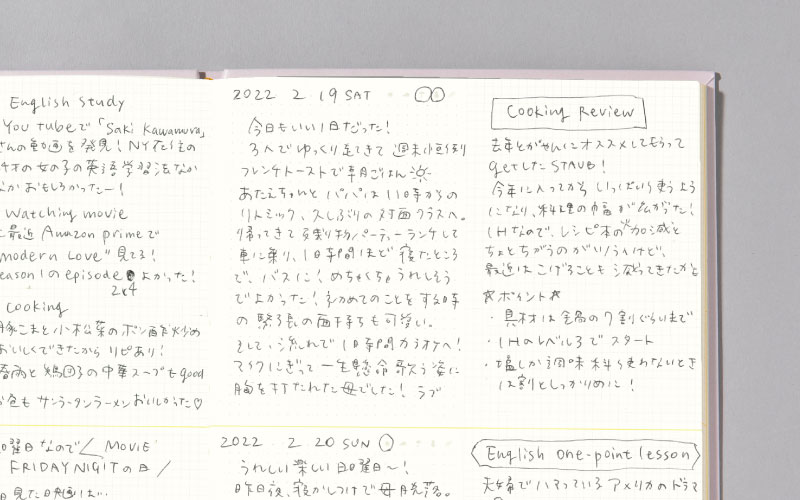 English Study
You tubeで「Saki Kawamura」
さんの動画を発見！NY在住の
才の女の子の英語学習法なか
なかおもしろかったー！
Watching movie
最近 Amazon primeで
modern Love" 見てる！
eason 1の episode よかった！
2x4
Cooking
豚こまと小松菜のポン酢炒め
おいしくできたから リピあり！
春雨と鶏団子の中華スープも good
お昼も サンラータンラーメンおいしかった♡
日曜日なので／MOVIE
FRIDAY NIGITの日／
日見た映画は…
2022 2 19 SAT
今日もいい1日だった！
3人でゆっくり起きてきて 週末恒例
フレンチトーストで朝ごはん
あたえちゃんと パパは 11時からの
リトミック、久しぶりの対面クラスへ。
帰ってきて残り物パーティーランチして
車に乗り、1日時間ほど 寝たところ
で、バスに！めちゃくちゃうれしそう
でよかった！初めてのことをする時
の 緊張の面持ちも可愛い。
そして、流れで1日時間カラオケへ！
マイクにぎって一生懸命歌う姿に
胸を打たれた母でした！ラブ
Cooking Review
去年とがやんにオススメしてもらって
getした STAUB！
今年に入ってから いっぱい使うよう
になり、料理の幅が広がった！
IHなので、レシピ本の火加減と
ちょとちがうのがいうけど、
最近はこげることも減ってきたかも
☆ポイント☆
・具材は全鍋の7割ぐらいまで
・IHのレベル3でスタート
・塩しか調味料使わないとき
は割としっかりめに！
2022 2 20 SUN
うれしい楽しい日曜日〜！
昨日夜、寝かしつけで母脱落。
English one-point lesson
夫婦でハマっているアメリカのドラマ